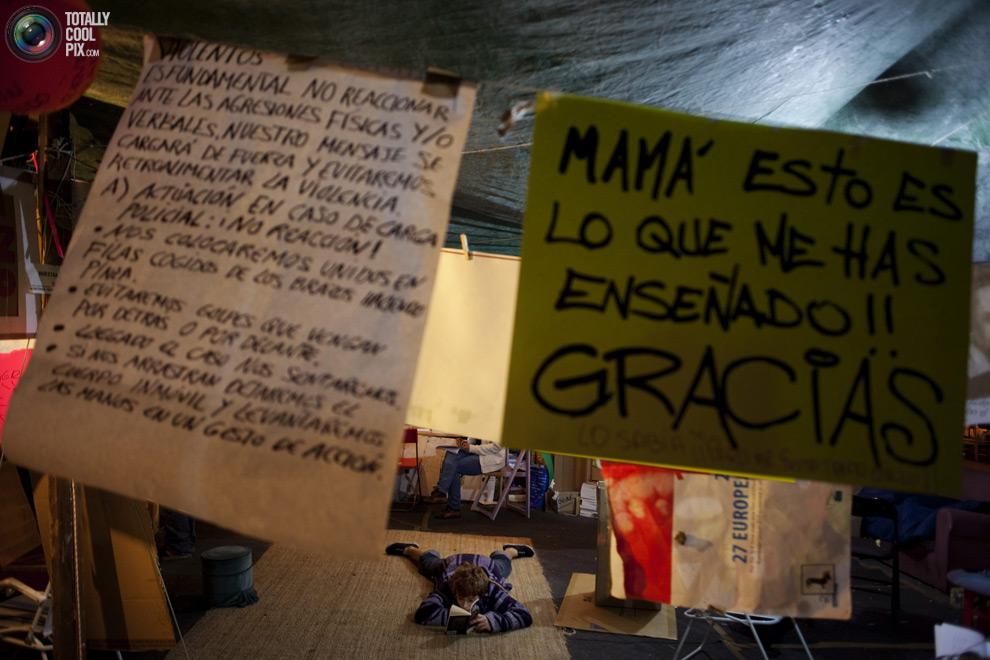 TOTALLY
COOL
PIX.COM
VIOLENTOS
ES FUNDAMENTAL NO REACCIONAR
ANTE LAS AGRESIONES FÍSICAS Y/O
VERBALES, NUESTRO MENSAJE SE
CARGARÁ DE FUERZA Y EVITAREMOS
RETROALIMENTAR LA VIOLENCIA.
A) ACTUACIÓN EN CASO DE CARGA
POLICIAL: ¡NO REACCIÓN!
• NOS COLOCAREMOS UNIDOS EN
FILAS COGIDOS DE LOS BRAZOS HACIENDO
PIÑA.
• EVITAREMOS GOLPES QUE VENGAN
POR DETRAS O POR DELANTE.
• LLEGADO EL CASO NOS SENTAREMOS
• SI NOS ARRASTRAN DEJAREMOS EL
CUERPO INMÓVIL Y LEVANTAREMOS
LAS MANOS EN UN GESTO DE
MAMÁ ESTO ES
LO QUE ME HAS
ENSEÑADO!!
GRACIAS
LO SABIA
27 EUROPE